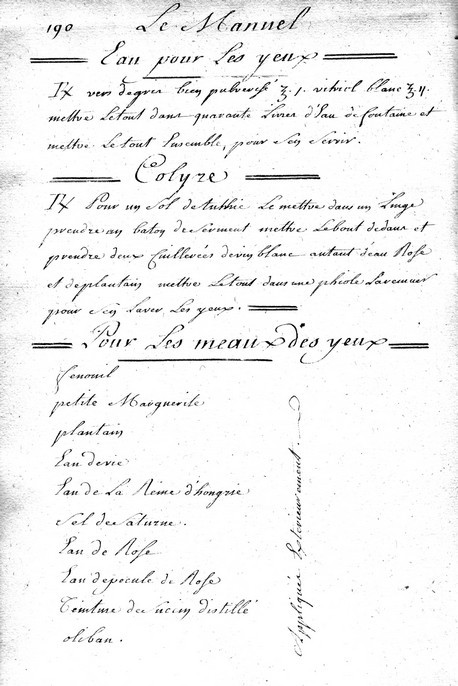 190 Le Manuel
Eau pour Les yeux
Rx vers degrer bien pulverisé ʒ. 1. vitriol blanc ʒ. 11.
mettre Letout dans quarante Livres d'Eau de fontaine et
mettre Le tout Ensemble, pour Sen Servir.
Colyre
Rx Pour un Sol de tuthie Le mettre dans un Linge
prendre un baton de Serment mettre Lebout dedans et
prendre deux Cuillerées devin blanc autant d'eau Rose
et de plantain mettre Letout dans une phiole
pour Sen Laver Les yeux.
Pour Les meaux des yeux
fenouil
petite Marguerite
plantain
Eau devie
Eau de La Reine d'hongrie
Sel de Saturne.
Eau de Rose
Eau de Rose
Teinture de distillé
oliban.
Appliquée Extérieurement